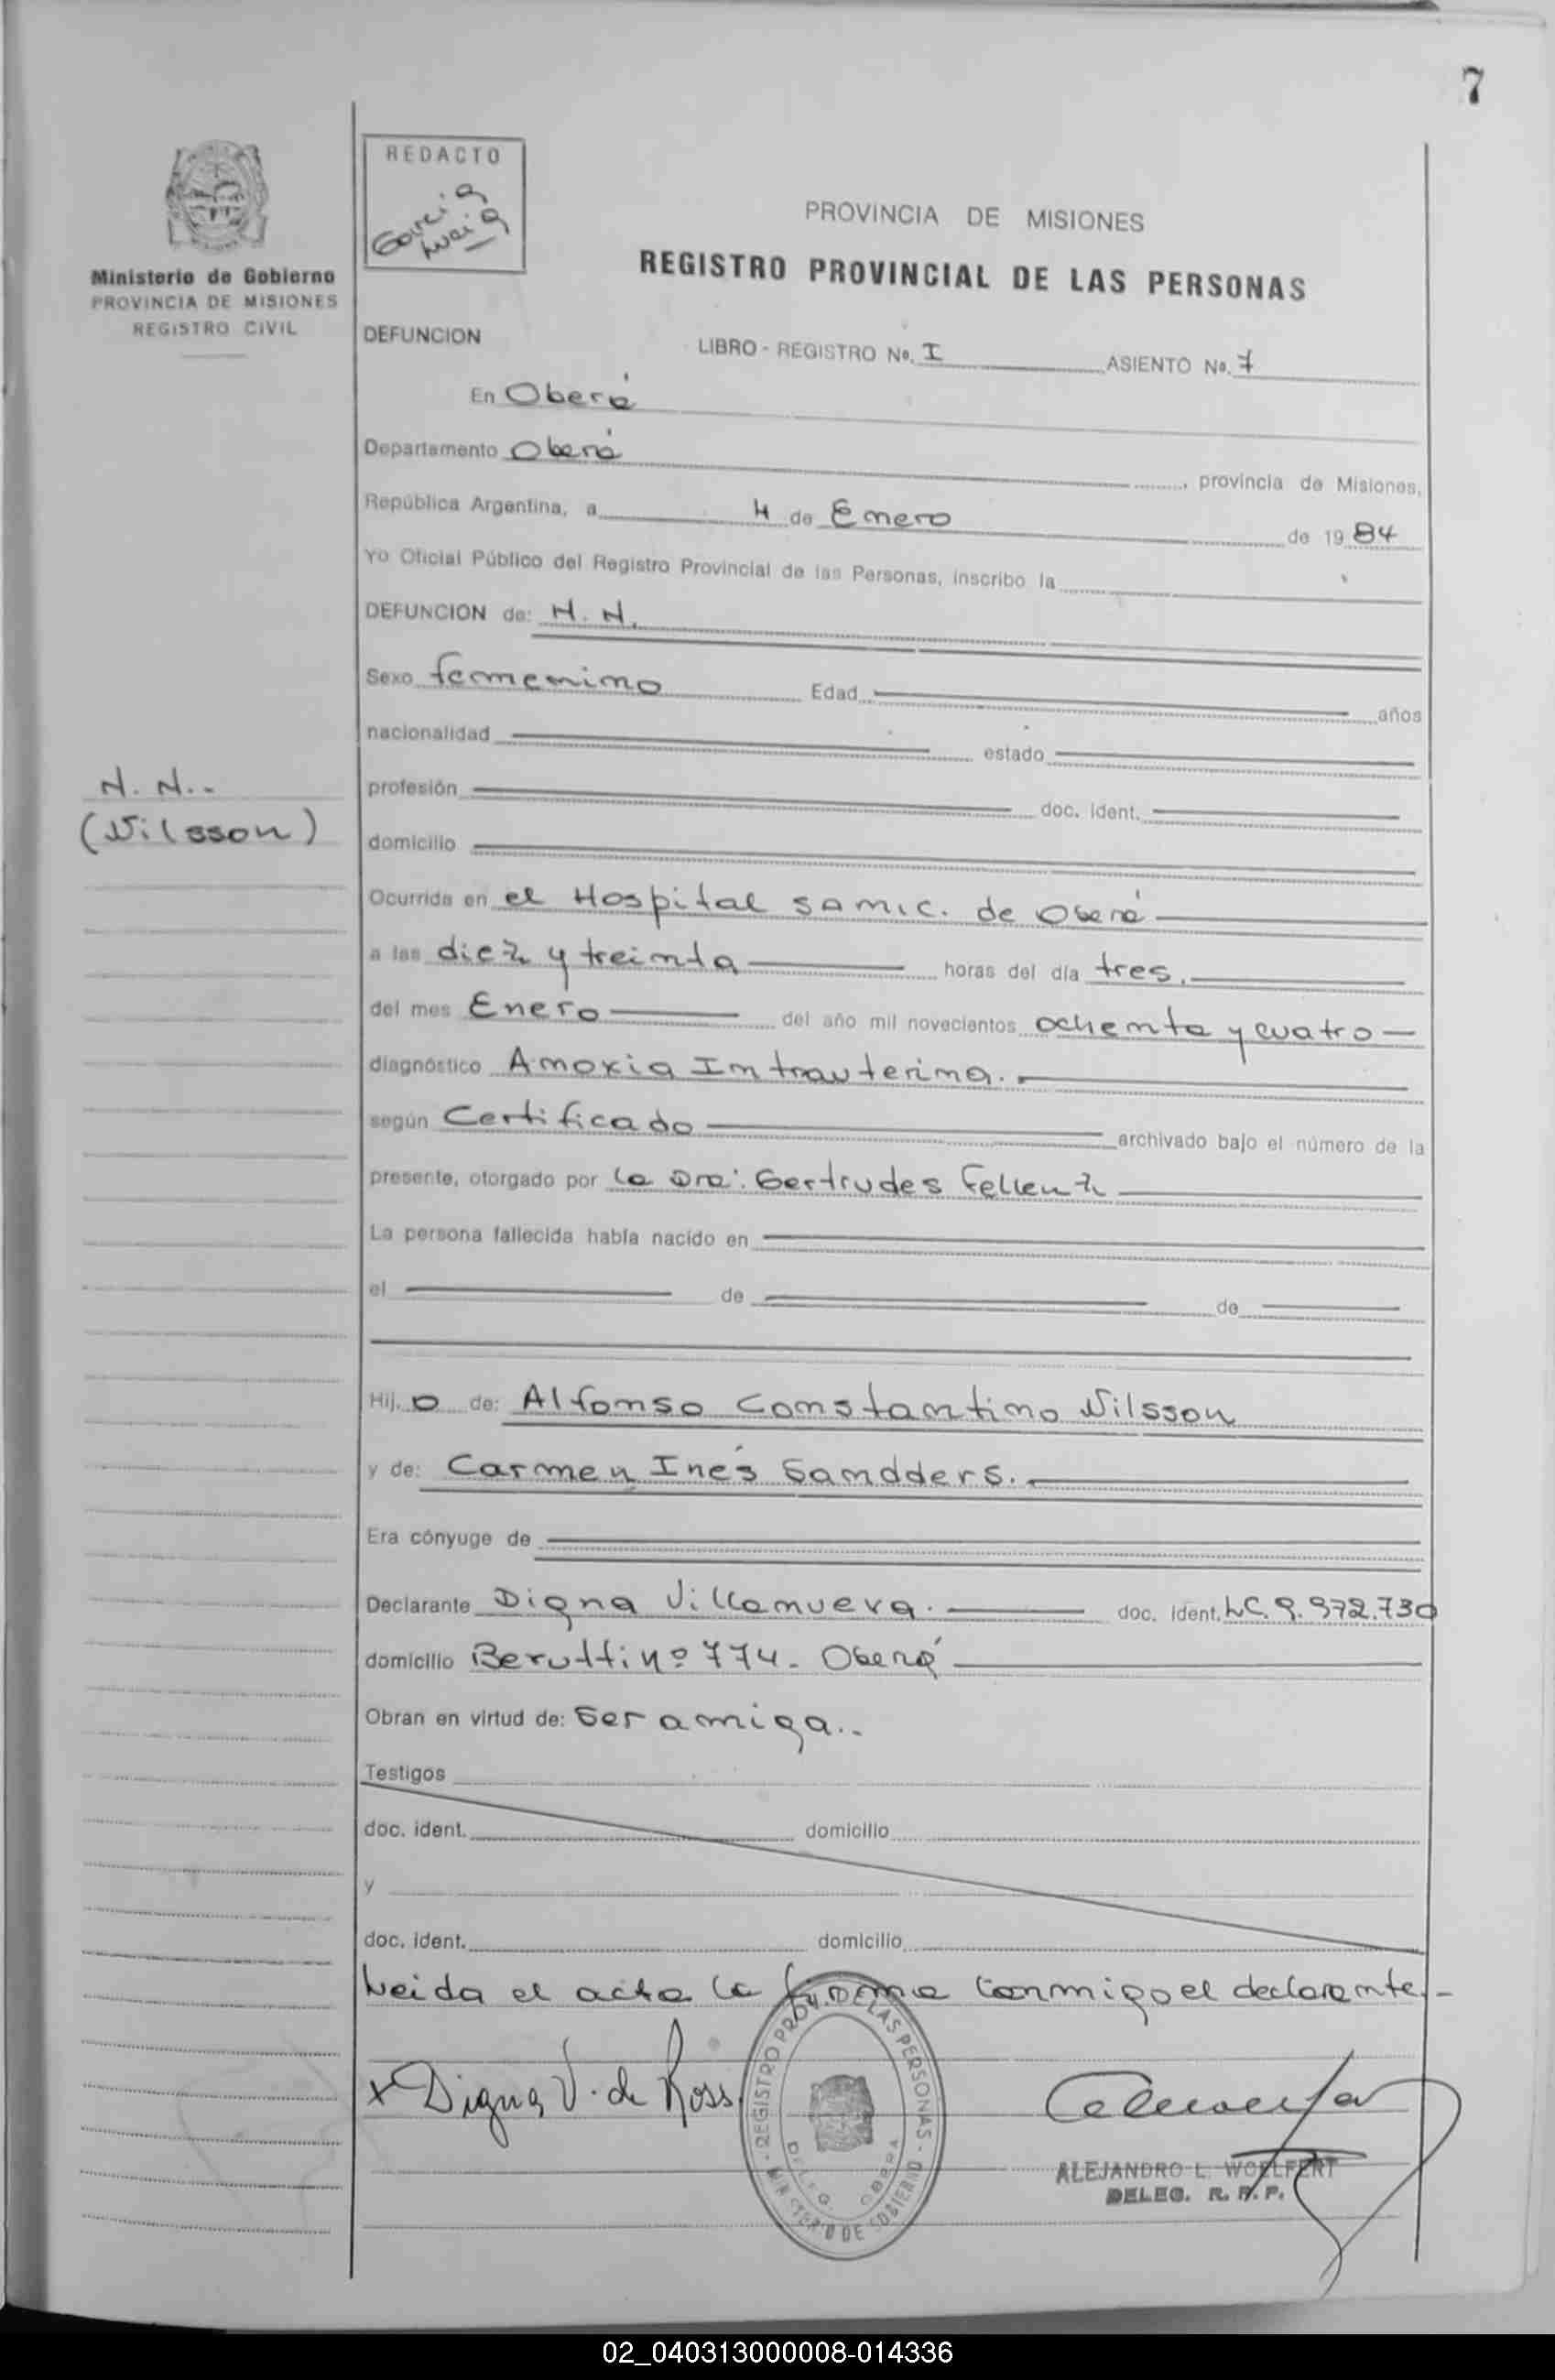 7
REDACTO
Garcia
PROVINCIA DE MISIONES
REGISTRO PROVINCIAL DE LAS PERSONAS
Ministerio de Gobierno
PROVINCIA DE MISIONES
REGISTRO CIVIL
DEFUNCION
LIBRO - REGISTRO No. I ASIENTO No. 7
En Oberá
Departamento Oberá, provincia de Misiones,
República Argentina, a 4 de Enero de 1984
Yo Oficial Público del Registro Provincial de las Personas, inscribo la
DEFUNCION de: N. N.
Sexo femenino Edad años
nacionalidad estado
N. N.-
profesión doc. ident.
(Nilsson)
domicilio
Ocurrida en el Hospital SAMIC. de Oberá
a las diez y treinta horas del día tres.
del mes Enero del año mil novecientos ochenta y cuatro
diagnóstico Anoxia Intrauterina.
según Certificado archivado bajo el número de la
presente, otorgado por la Dra: Gertrudes Fellenz
La persona fallecida había nacido en
el de de
Hij.o de: Alfonso Constantino Nilsson
y de: Carmen Inés Sandders.
Era cónyuge de
Declarante Digna Villanueva. doc. ident. LC. 9.972.730
domicilio Berutti nº 774. Oberá
Obran en virtud de: Ser amiga..
Testigos
doc. ident. domicilio
y
doc. ident. domicilio
Leida el acta la firma conmigo el declarante.-
x Digna V. de Ross
REGISTRO PROV. DE LAS PERSONAS - MINISTERIO DE GOBIERNO -
DELEG. OBERA
ALEJANDRO L. WOELFERT
DELEG. R. P. P.
02_040313000008-014336